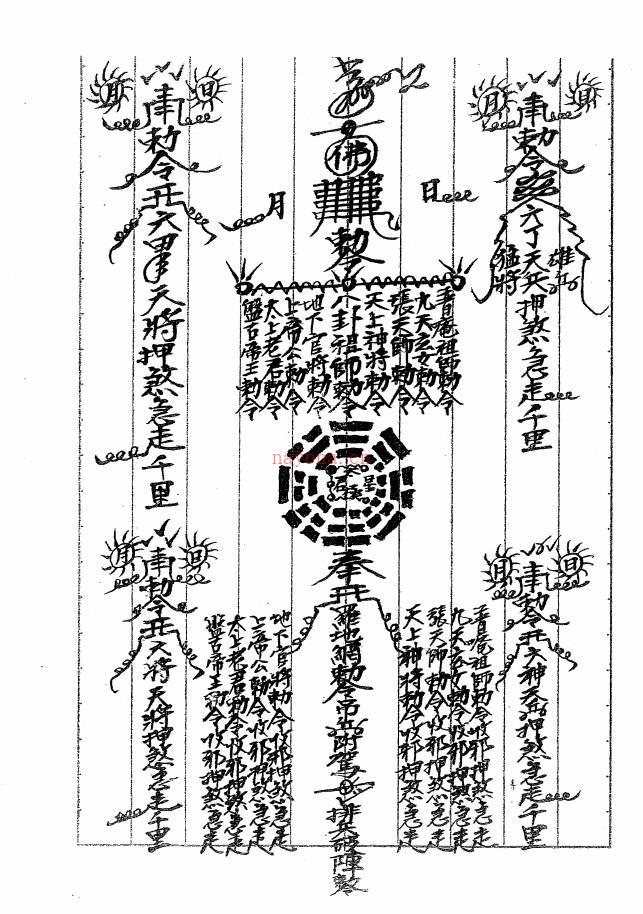 日
月
奉勅令六丁天兵押煞急走千里
雄兵
猛將
佛
勅令
日
月
普庵祖師勅令
九天玄女勅令
張天師勅令
天上神將勅令
八卦祖師勅令
地下官將勅令
上帝公勅令
太上老君勅令
盤古帝王勅令
日
月
奉勅令六甲天將押煞急走千里
nayona.cn
日
月
奉勅令六神天兵押煞急走千里
普庵祖師勅令收邪押煞急走
九天玄女勅令收邪押煞急走
張天師勅令收邪押煞急走
天上神將勅令收邪押煞急走
奉
羅地網勅令
排兵破陣
地下官將勅令收邪押煞急走
上帝公勅令收邪押煞急走
太上老君勅令收邪押煞急走
盤古帝王勅令收邪押煞急走
日
月
奉勅令天將押煞急走千里